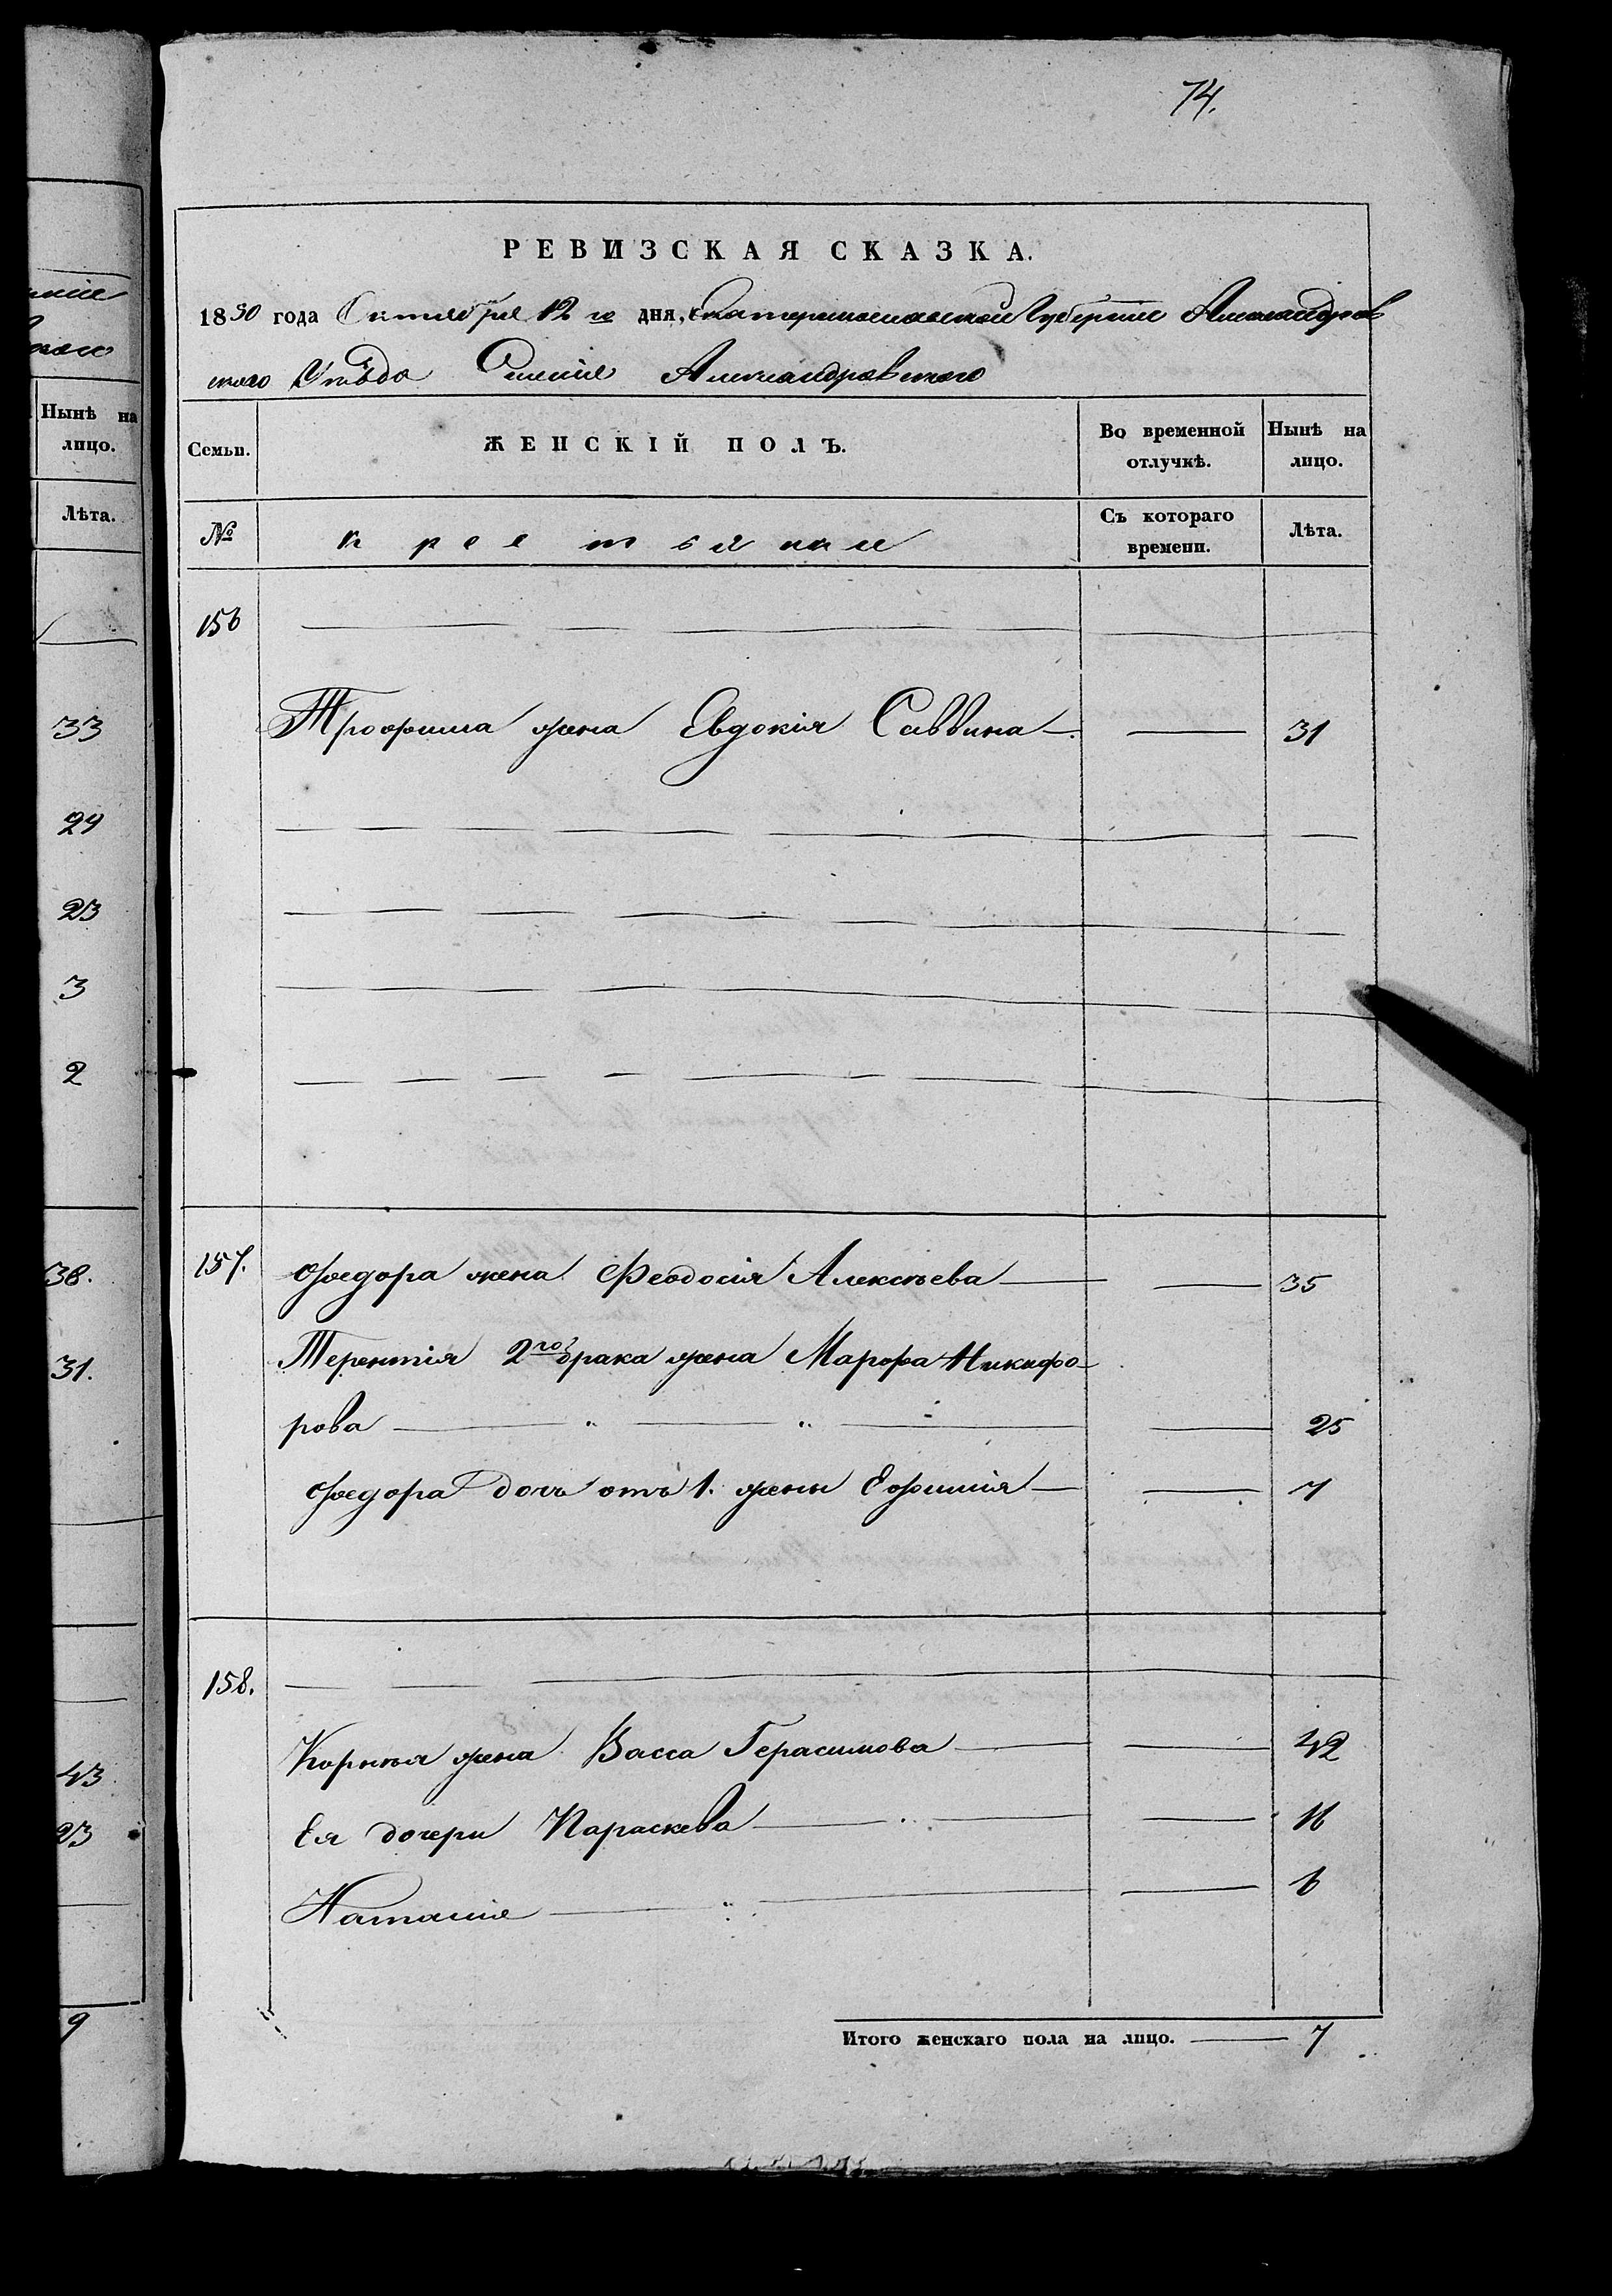 74.
РЕВИЗСКАЯ СКАЗКА.
1850 года Октября 12 го дня, Екатеринославской Губернии Александров
ского Уѣзда Селенія Александровского
Нынѣ на
лицо.
Семьи.
ЖЕНСКІЙ ПОЛЪ.
Во временной
отлучкѣ.
Нынѣ на
лицо.
Лѣта.
№
крестьянки
Съ котораго
времени.
Лѣта.
156
33
Трофима жена Евдокія Саввина — — 31
29
23
3
2
38.
157. Федора жена Феодосія Алексѣева — — 35
31.
Терентія 2го брака жена Марфа Никифо-
рова — " — " — — 25
Федора дочь отъ 1. жены Ефимія — — 7
158.
43
Корнѣя жена Васса Герасимова — — 42
23
Ея дочери Параскева — — 16
Наталія — " — — 6
9
Итого женскаго пола на лицо. — 7